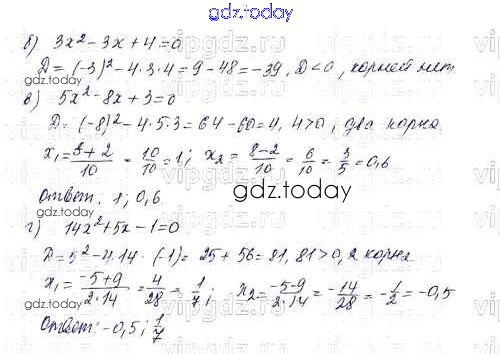 gdz.today
б) 3x² - 3x + 4 = 0
D = (-3)² - 4·3·4 = 9 - 48 = -39, D < 0, корней нет
в) 5x² - 8x + 3 = 0
D = (-8)² - 4·5·3 = 64 - 60 = 4, 4>0, два корня
x₁ = 8+2/10 = 10/10 = 1; x₂ = 8-2/10 = 6/10 = 3/5 = 0,6
Ответ: 1; 0,6
gdz.today
г) 14x² + 5x - 1 = 0
D = 5² - 4·14·(-1) = 25 + 56 = 81, 81>0, 2 корня
x₁ = -5+9/2·14 = 4/28 = 1/7; x₂ = -5-9/2·14 = -14/28 = -1/2 = -0,5
Ответ: -0,5; 1/7